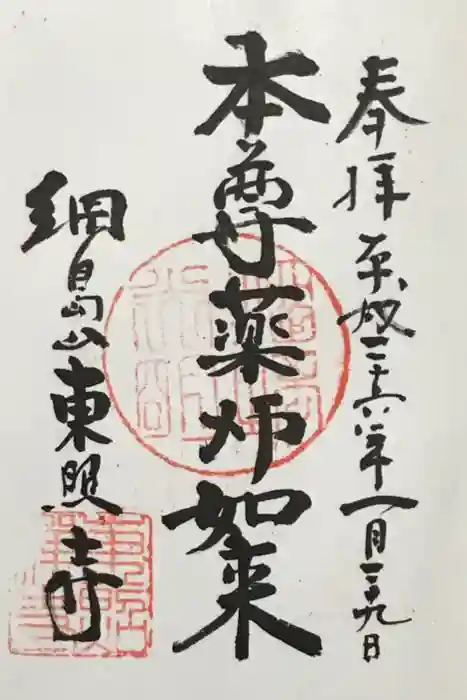 奉拝 平成二十六年一月二十九日
本尊薬师如来
細島山東照寺